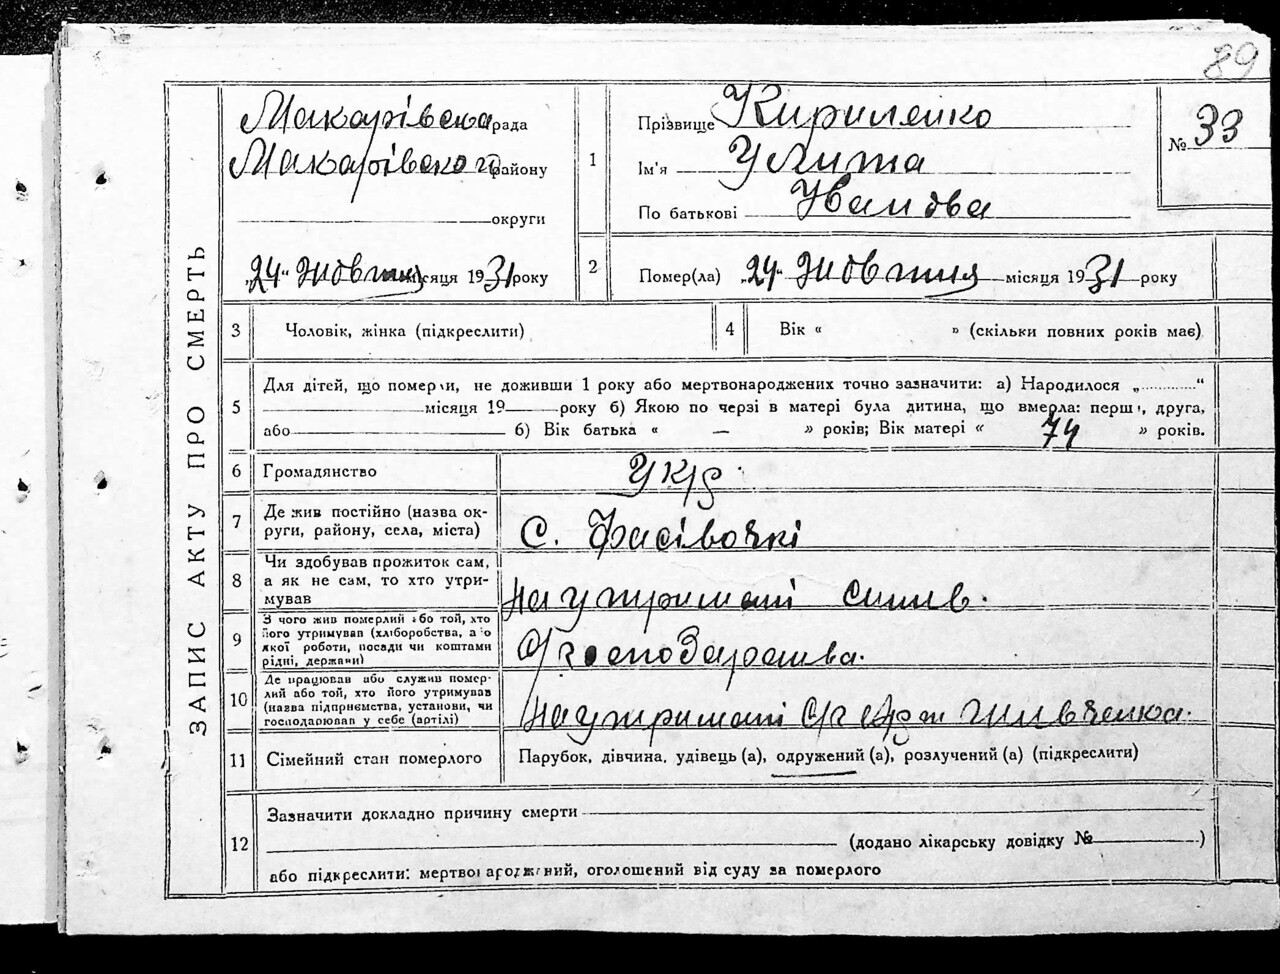 89
ЗАПИС АКТУ ПРО СМЕРТЬ
Макарівська рада
Макарівского району
округи
„24" Жовтня місяця 1931 року
1
Прізвище Кириленко
Ім'я Улита
По батькові Іванова
№ 33
2 Помер(ла) „24" Жовтня місяця 1931 року
3 Чоловік, жінка (підкреслити)
4 Вік « » (скільки повних років має)
5
Для дітей, що померли, не доживши 1 року або мертвонароджених точно зазначити: а) Народилося „ “
місяця 19 року б) Якою по черзі в матері була дитина, що вмерла: перша, друга,
або б) Вік батька « — » років; Вік матері « 74 » років.
6 Громадянство Укр.
7 Де жив постійно (назва ок-
руги, району, села, міста) с. Фасівочкі
8 Чи здобував прожиток сам,
а як не сам, то хто утри-
мував
на утримані
9 З чого жив померлий або той, хто
його утримував (хліборобства, або
якої роботи, посади чи коштами
рідні, держави)
10 Де працював або служив помер-
лий або той, хто його утримував
(назва підприємства, установи, чи
господарював у себе (артілі)
на утримані с/г арт Шевченка.
11 Сімейний стан померлого Парубок, дівчина, удівець (а), одружений (а), розлучений (а) (підкреслити)
12
Зазначити докладно причину смерти
(додано лікарську довідку № )
або підкреслити: мертвонароджений, оголошений від суду за померлого